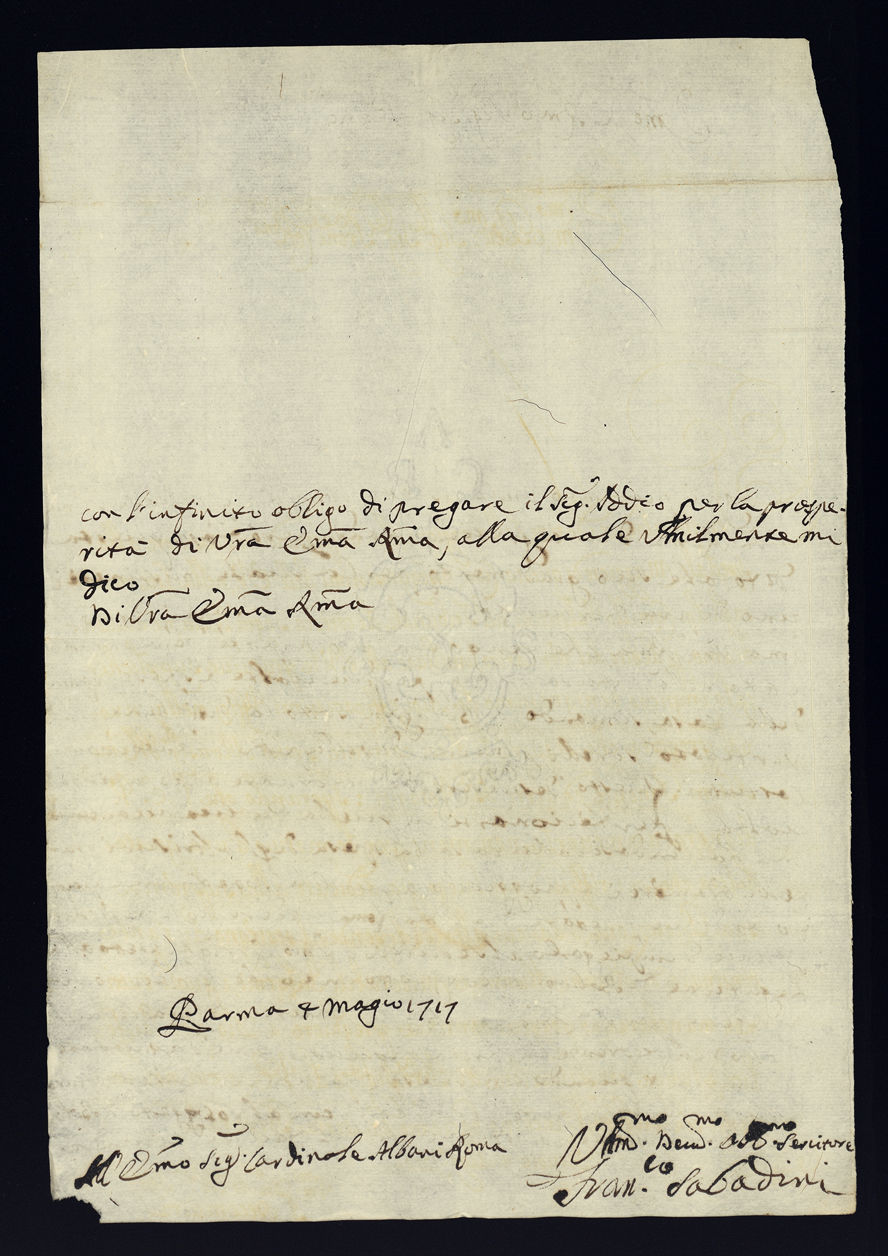 con l'infinito obligo di pregare il Sig.r Iddio per la prospe-
rità di Vrã Emã Rmã, alla quale Umilmente mi
dico
Di Vrã Emã Rmã
Parma 4 Magio 1717
All Emo Sig.r Cardinale Albani Roma
Um.mo Deu.mo Obb.mo Seruitore
Fran.co Sabadini